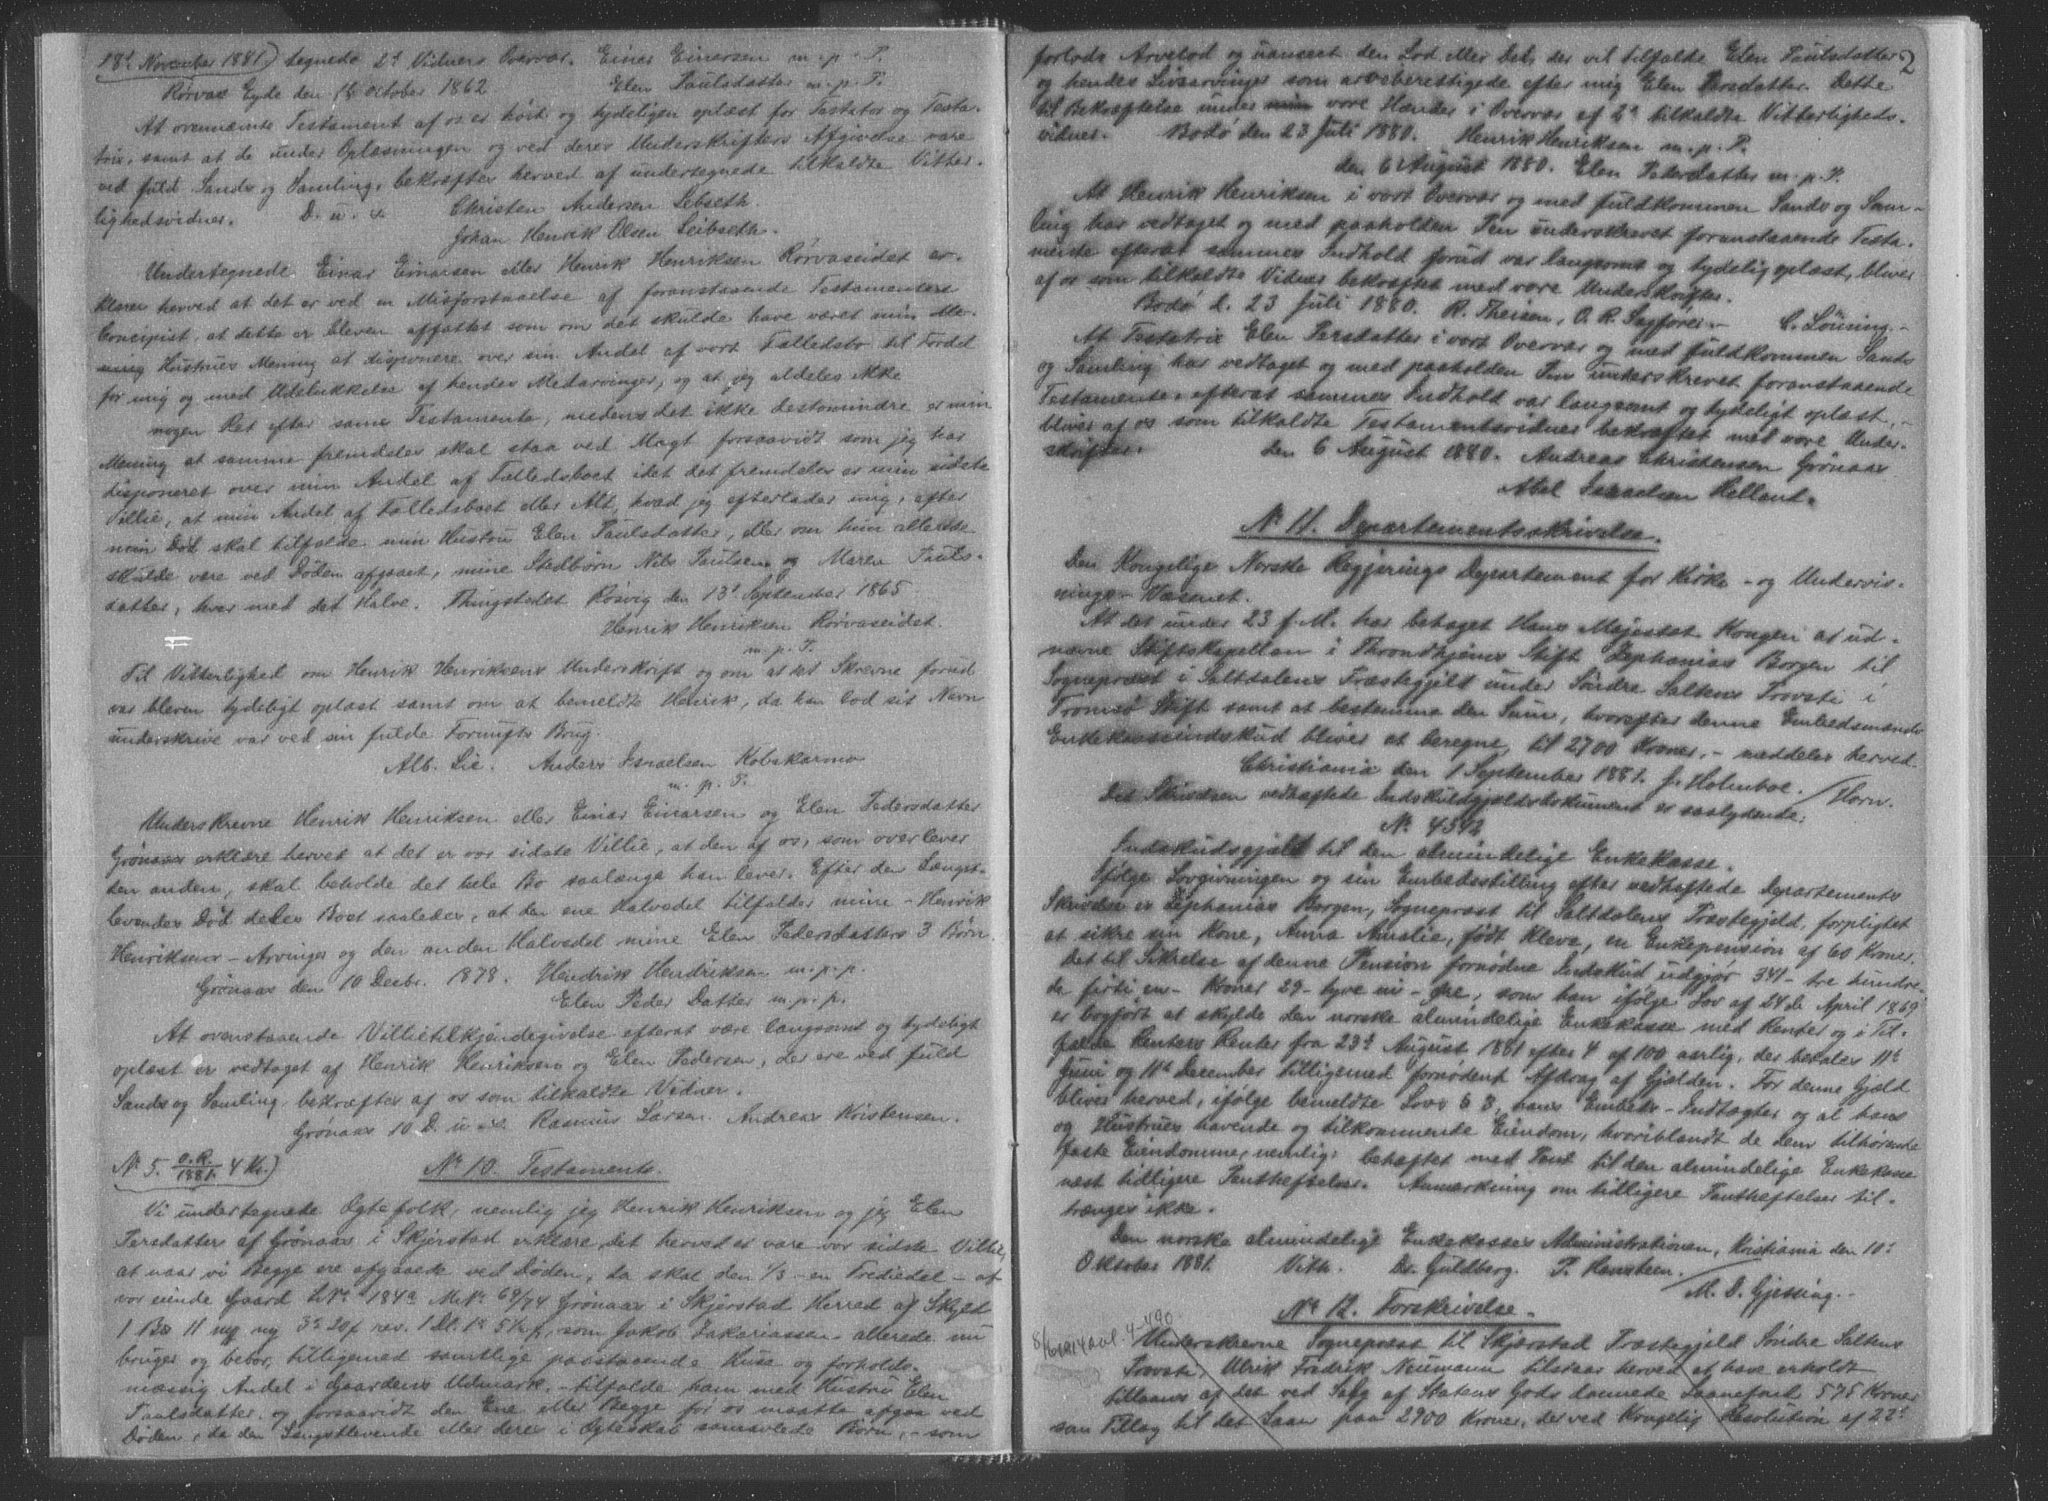 18d November 1881) tegnede 2d Vidners Overvær. Einar Einersen m. p. P.
Rørvas Eyde den 18 October 1862 Elen Paulsdatter m. p. P.
At ovennævnte Testament af os er höit og tydeligen oplæst for Testator og Testa-
trix, samt at de under Oplæsningen og ved deres Underskrifters Afgivelse vare
ved fuld Sands og Samling, bekræftes herved af undertegnede tilkaldte Vitter-
lighedsvidner. D. u. s. Christen Andersen Lebseth.
Johan Henrik Olsen Leibseth.
Undertegnede Einar Einarsen eller Henrik Henriksen Rørvaseidet er-
klærer herved at det er ved en Misforstaaelse af foranstaaende Testamenters
Concipist, at dette er bleven affattet som om det skulde have været min Me-
ning Hustrues Mening at disponere over sin Andel af vort Fælledsbo til Fordel
for mig og med Udelukkelse af hendes Medarvinger, og at jeg aldeles ikke
nogen Ret efter same Testamente, medens det ikke destomindre er min
Mening at samme fremdeles skal staa ved Magt forsaavidt som jeg har
disponeret over min Andel af Fælledsboet idet det fremdeles er min sidste
Villie, at min Andel af Fælledsboet eller Alt, hvad jeg efterlader mig, efter
min Död skal tilfalde min Hustru Elen Paulsdatter, eller om hun allerede
skulde være ved Døden afgaaet, mine Stedbørn Nils Paulsen og Maren Pauls-
datter, hver med det Halve. Thingstedet Rösvig den 13d September 1865
Henrik Henriksen Rörvaseidet.
m. p. P.
Til Vitterlighed om Henrik Henriksens Underskrift og om at det Skrevne forud
var bleven tydeligt oplæst samt om at bemeldte Henrik, da han lod sit Navn
underskrive var ved sin fulde Fornufts Brug.
Alb. Lie. Anders Israelsen Kobskarmo
m. p. P.
Underskrevne Henrik Henriksen eller Einar Einarsen og Elen Pedersdatter
Grönaas erklære herved at det er vor sidste Villie, at den af os, som overlever
den anden, skal beholde det hele Bo saalænge han lever. Efter den Længst-
levendes Död deles Boet saaledes, at den ene Halvedel tilfalder mine - Henrik
Henriksens - Arvinger og den anden Halvedel mine Elen Pedersdatters 3 Börn.
Grönaas den 10 Decbr. 1878. Hendrik Hendriksen m. p. p.
Elen Peder Datter m. p. p.
At ovenstaaende Villietilkjendegivelse efterat være langsomt og tydeligt
oplæst er vedtaget af Henrik Henriksen og Elen Pedersen, der ere ved fuld
Sands og Samling, bekræftes af os som tilkaldte Vidner.
Grönaas 10 D. u. s. Rasmus Larsen. Andreas Kristensen.
No 5. O.R./1881. 4 Kr.) No 10. Testamente.
Vi undertegnede Ægtefolk, nemlig jeg Henrik Henriksen og jeg Elen
Persdatter af Grönaas i Skjerstad erklære, det herved er være vor sidste Villie,
at naar vi Begge ere afgaaede ved Döden, da skal den 1/3 - en Trediedel - af
vor eiende Gaard L.No 184a M.No 69/74 Grönaas i Skjerstad Herred af Skyld
1 Bs 11 mrk ny 3d 20f rev. 1 Dl. 1o 5½f, som Jakob Zakariassen allerede nu
bruger og bebor, tilligemed samtlige paastaaende Huse og forholds-
mæssig Andel i Gaardens Udmark, - tilfalde ham med Hustru Elen
Paulsdatter, og forsaavidt den Ene eller Begge för os maatte afgaa ved
Döden, da den Længstlevende eller deres i Ægteskab sammavlede Börn, - som
2
forlods Arvelod og uanseet den Lod eller Del, der vil tilfalde Elen Paulsdatter
og hendes Livsarvinger som arveberettigede efter mig Elen Persdatter. Dette
til Bekræftelse under min vore Hænder i Overvær af 2d tilkaldte Vitterligheds-
vidner. Bodö den 23 Juli 1880. Henrik Henriksen m. p. P.
den 6 August 1880. Elen Pedersdatter m. p. P.
At Henrik Henriksen i vort Overvær og med fuldkommen Sands og Sam-
ling har vedtaget og med paaholden Pen underskrevet foranstaaende Testa-
mente efterat sammes Indhold forud var langsomt og tydelig oplæst, bliver
af os som tilkaldte Vidner bekræftet med vore Underskrifter.
Bodö d. 23 Juli 1880. R. Theisen, O. R. Sagförer. - C. Lönsing. -
At Testatrix Elen Persdatter i vort Overvær og med fuldkommen Sands
og Samling har vedtaget og med paaholden Pen underskrevet foranstaaende
Testamente, efterat sammes Indhold var langsomt og tydeligt oplæst, -
bliver af os som tilkaldte Testamentsvidner bekræftet med vore Under-
skrifter. den 6 August 1880. Andreas Christensen Grönaas
Abel Israelsen Helland.
No 11. Departementsskrivelse.
Den Kongelige Norske Regjerings Departement for Kirke- og Undervis-
nings-Væsenet.
At det under 23 f. M. har behaget Hans Majestæt Kongen at ud-
nævne Stiftskapellan i Throndhjems Stift Zephanias Borgen til
Sognepræst i Saltdalens Præstegjeld under Söndre Saltens Provsti i
Tromsö Stift samt at bestemme den Sum, hvorefter denne Embedsmands
Enkekasseindskud bliver at beregne, til 2700 Kroner, - meddeles herved.
Christiania den 1 September 1881. J. Holmboe. / Horn.
Det Skrivelsen vedhæftede Indskudsgjældsdokument er saalydende:
No 4542
Indskudsgjæld til den almindelige Enkekasse.
Ifölge Lovgivningen og sin Embedsstilling efter vedhæftede Departements
Skrivelse er Zephanias Borgen, Sognepræst til Saltdalens Præstegjeld, forpligtet
at sikre sin Kone, Anna Amalie, född Kleve, en Enkepension af 60 Kroner.
Det til Sikrelse af denne Pension fornødne Indskud udgjør 341 - tre hundre-
de firti en - Kroner 29 - tyve ni - Øre, som han ifölge Lov af 24de April 1869
er bogfört at skylde den norske almindelige Enkekasse med Renter og i Til-
fælde Renters Renter fra 23d August 1881 efter 4 af 100 aarlig, der betales 11te
Juni og 11te December tilligemed fornödent Afdrag af Gjælden. For denne Gjæld
bliver herved, ifölge bemeldte Lovs § 8, hans Embeds-Indtægter og al hans
og Hustrues havende og tilkommende Eiendom, hvoriblandt de dem tilhörende
faste Eiendomme, nemlig: behæftet med Pant til den almindelige Enkekasse
næst tidligere Panthæftelser. Anmærkning om tidligere Panthæftelser til-
trænges ikke.
Den norske almindelige Enkekasses Administrationen, Kristiania den 10d
Oktober 1881. Vith. Dr. Guldberg. P. Hansteen.
/ M. D. Gjessing. -
No 12. Forskrivelse.
Underskrevne Sognepræst til Skjerstad Præstegjeld Söndre Saltens
Provsti, Ulrik Fredrik Neumann tilstaar herved at have erholdt
tillaans af det ved Salg af Statens Gods dannede Laanefond 575 Kroner
som Tillæg til det Laan paa 2900 Kroner, der ved Kongelig Resolution af 22d